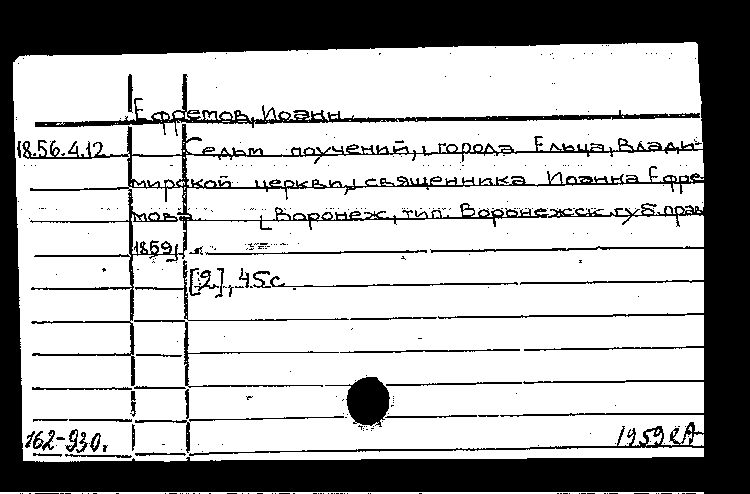 Ефремов, Иоанн.
18.56.4.12 Седьм поучений, города Ельца, Влади-
мирской церкви, священника Иоанна Ефре
мова. [Воронеж, тип. Воронежск. губ. прав
1859].
[2], 45с.
162-930. 1959